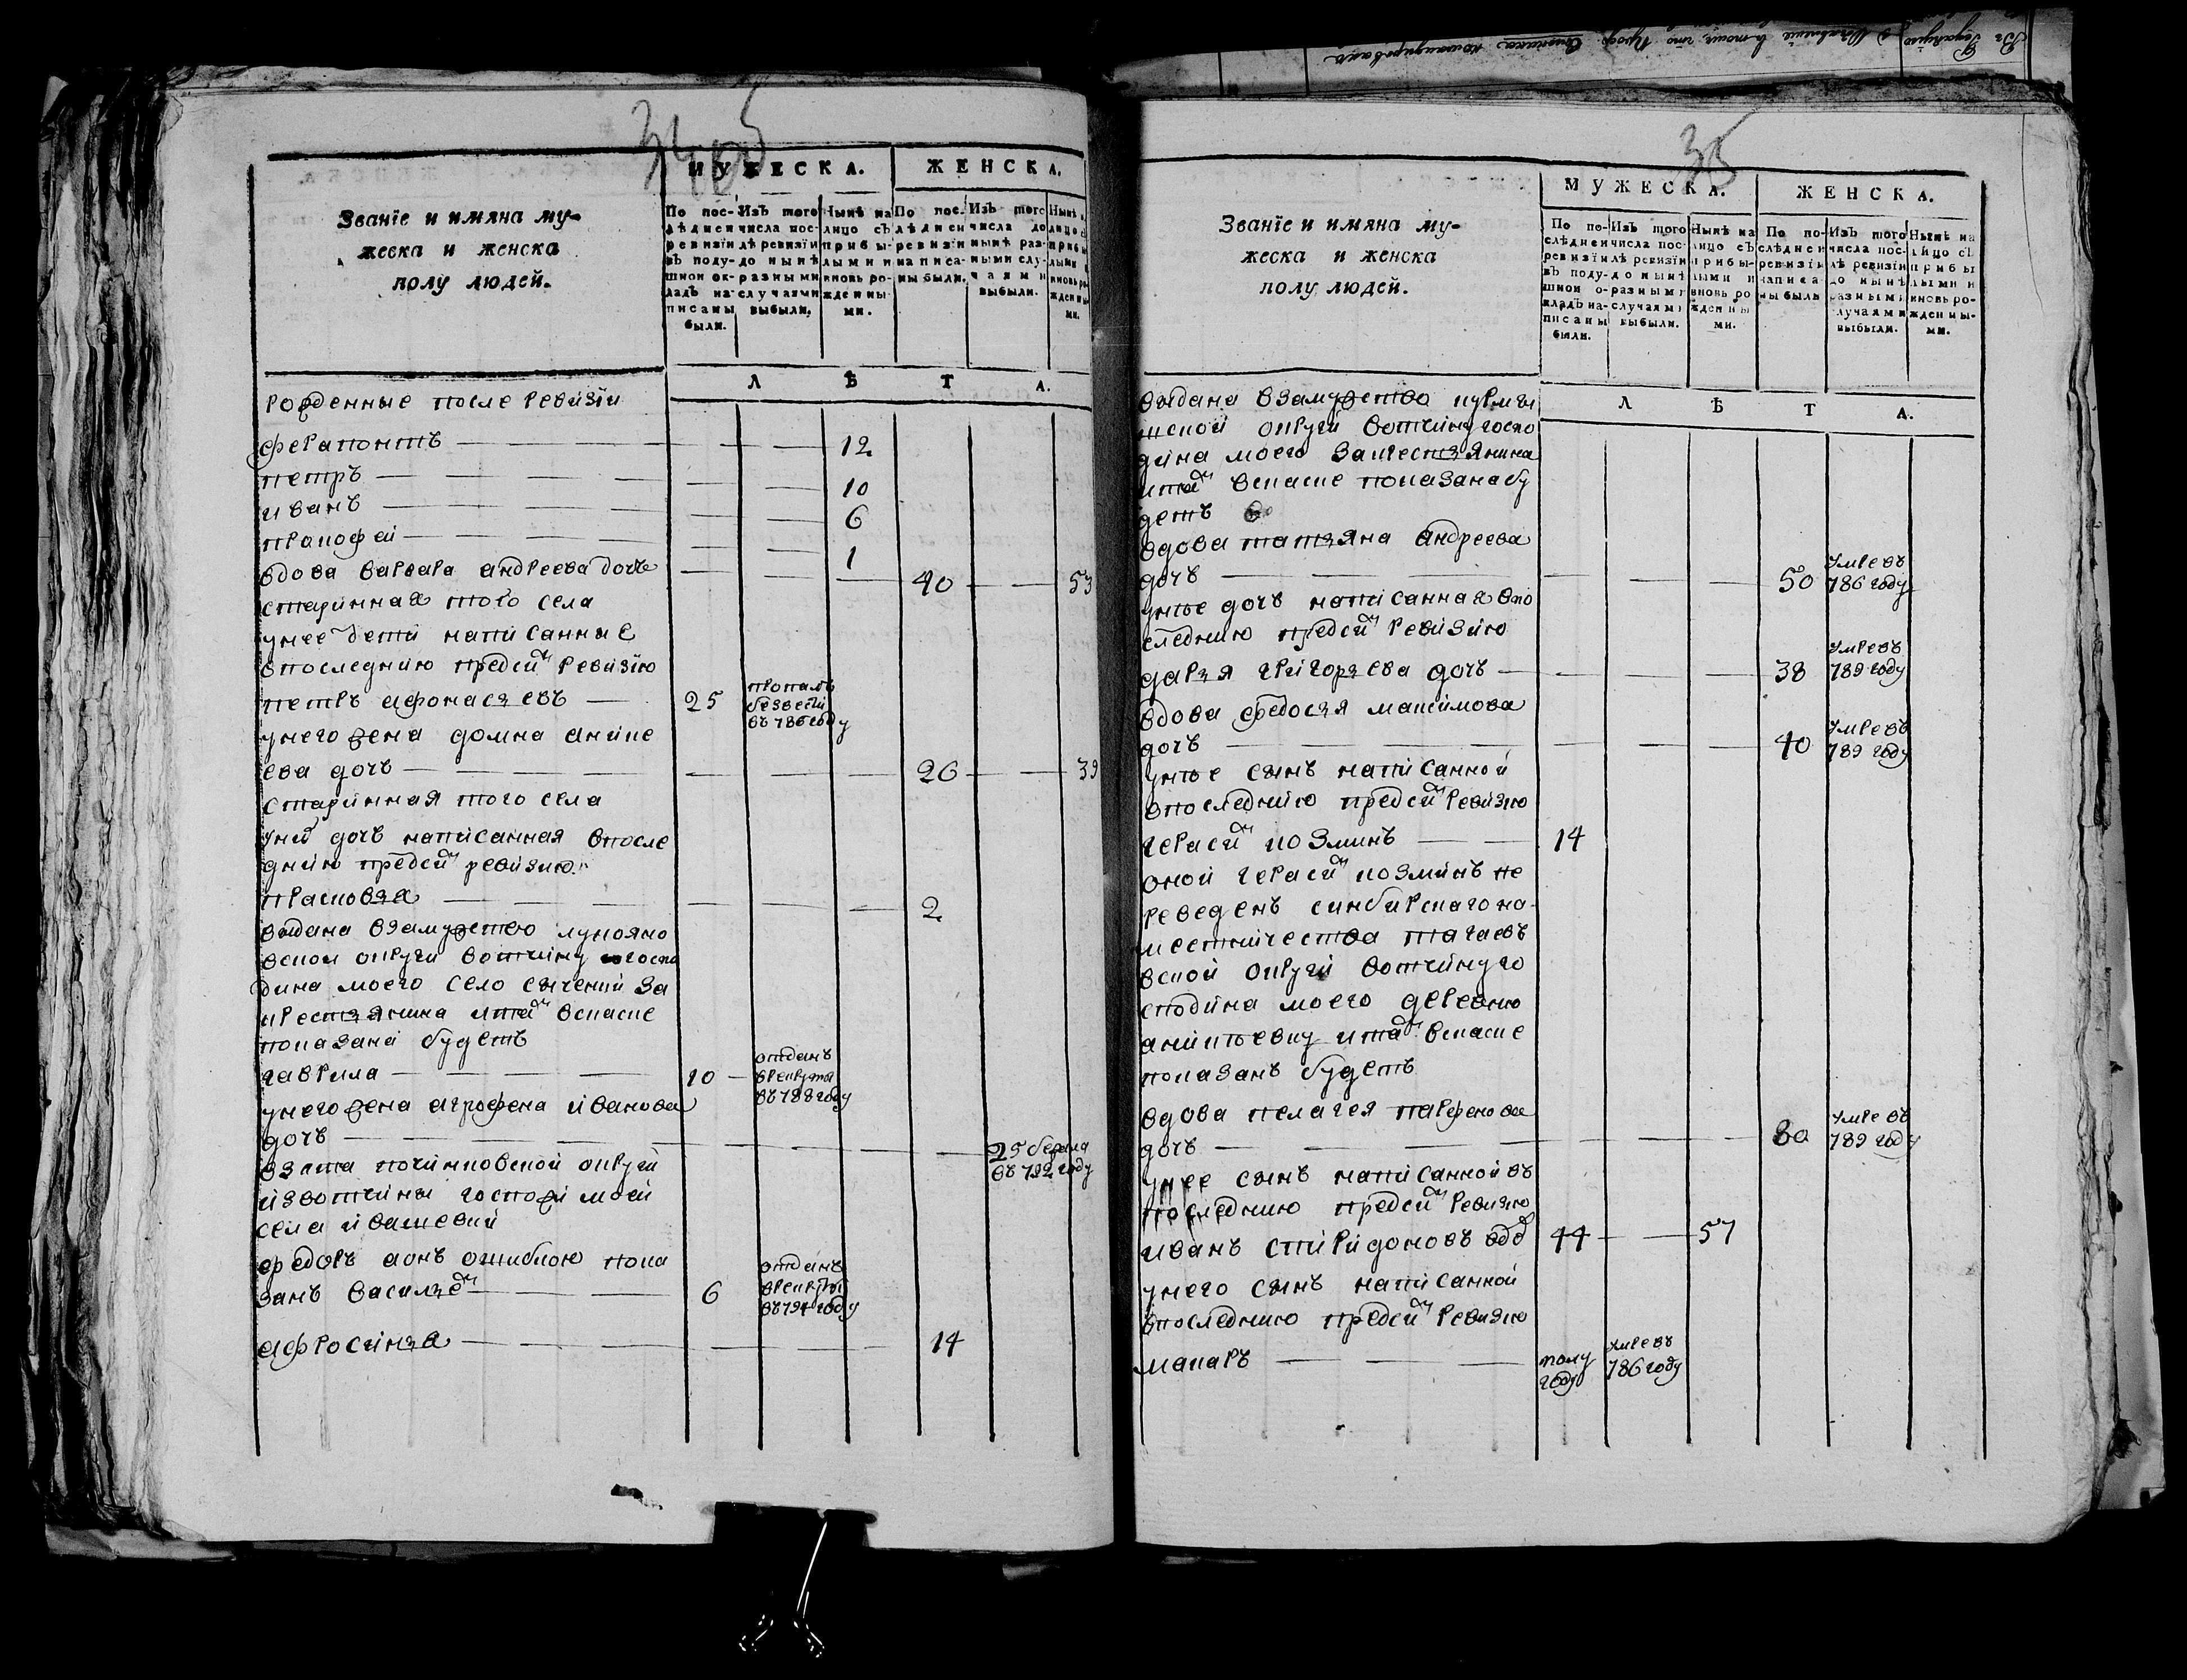 34 об
МУЖЕСКА. ЖЕНСКА.
Званїе и имяна му-
жеска и женска
полу людей.
По пос-
лѣдней
ревизїи
въ поду-
шной ок-
ладъ на-
писаны
были.
Изъ того
числа пос-
лѣ ревизїи
до нынѣ
разными
случаями
выбыли.
Нынѣ на
лицо съ
прибы-
лыми и
вновь ро-
жденны-
ми.
По пос-
лѣдней
ревизїи
написа-
ны были.
Изъ того
числа до
нынѣ раз-
ными слу-
чаями
выбыли.
Нынѣ
лицо с
прибы
лыми
вновь ро-
жденны
ми.
Л Ѣ Т А.
рожденные после ревизїи
ферапонтъ 12
петръ 10
иванъ 6
прокофей 1
вдова варвара андреева дочь 40 53
старинная того села
унее дети написанные
впоследнюю предсим ревизїю
петръ афонасьевъ 25 пропалъ
безвести
въ 786 году
унего жена домна аники
ева дочь 26 39
старинная того села
уних дочь написанная впосле
днюю предсим ревизию
прасковья 2
выдана взамужство лукояно
вской округи вотчину господ
дина моего село сычении за
крестьянина итам вскаске
показана будетъ
гаврила 10 отданъ
врекруты
въ 788 году
унего жена агрофена иванова
дочь 25 бежала
въ 792 году
взята починковской округи
извотчины госпожи моей
села ивашевки
федоръ аонъ ошибкою пока
занъ василье 6 отданъ
врекруты
въ 794 году
афросинья 14
35
МУЖЕСКА. ЖЕНСКА.
Званїе и имяна му-
жеска и женска
полу людей.
По по-
слѣдней
ревизїи
въ поду-
шной о-
кладъ на-
писаны
были.
Изъ того
числа пос-
лѣ ревизїи
до нынѣ
разными
случаями
выбыли.
Нынѣ на
лицо съ
прибы-
лыми и
вновь ро
жденны
ми.
По по-
слѣдней
ревизїи
написа-
ны были
Изъ того
числа пос-
лѣ ревизїи
до нынѣ
разными
случаями
выбыли.
Нынѣ на
лицо съ
прибы
лыми и
вновь ро-
жденны-
ми.
Л Ѣ Т А.
выдана взамужство курмы
шской округи вотчину госпо
дина моего закрестьянина
итам вскаске показана бу
детъ
вдова татьяна андреева
дочь 50 умре въ
786 году
унее дочь написанная впо
следнюю предсим ревизию
дарья григорьева дочь 38 умре въ
789 году
вдова федосья максимова
дочь 40 умре въ
789 году
унее сынъ написанной
впоследнюю предсим ревизию
герасим козминъ 14
оной герасим козминъ пе
реведенъ синбирскаго на
местничества тагаевъ
вской округи вотчину го
сподина моего деревню
аникеевку итам вскаске
показанъ будетъ
вдова пелагея парфенова
дочь 80 умре въ
789 году
унее сынъ написанной въ
последнюю предсим ревизию
иванъ спиридоновъ вдов 44 57
унего сынъ написанной
впоследнюю предсим ревизию
макаръ полу
году умре въ
786 году